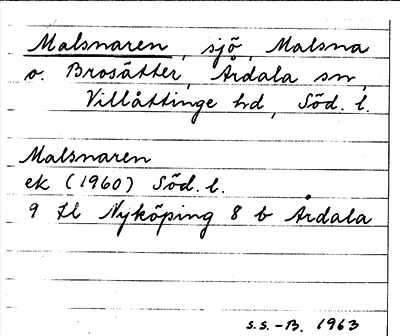 Malsnaren, sjö, Malsna
o. Brosätter, Årdala sn,
Villåttinge hd, Söd. l.
Malsnaren
ek (1960) Söd. l.
9 H Nyköping 8 b Årdala
S.S.-B. 1963